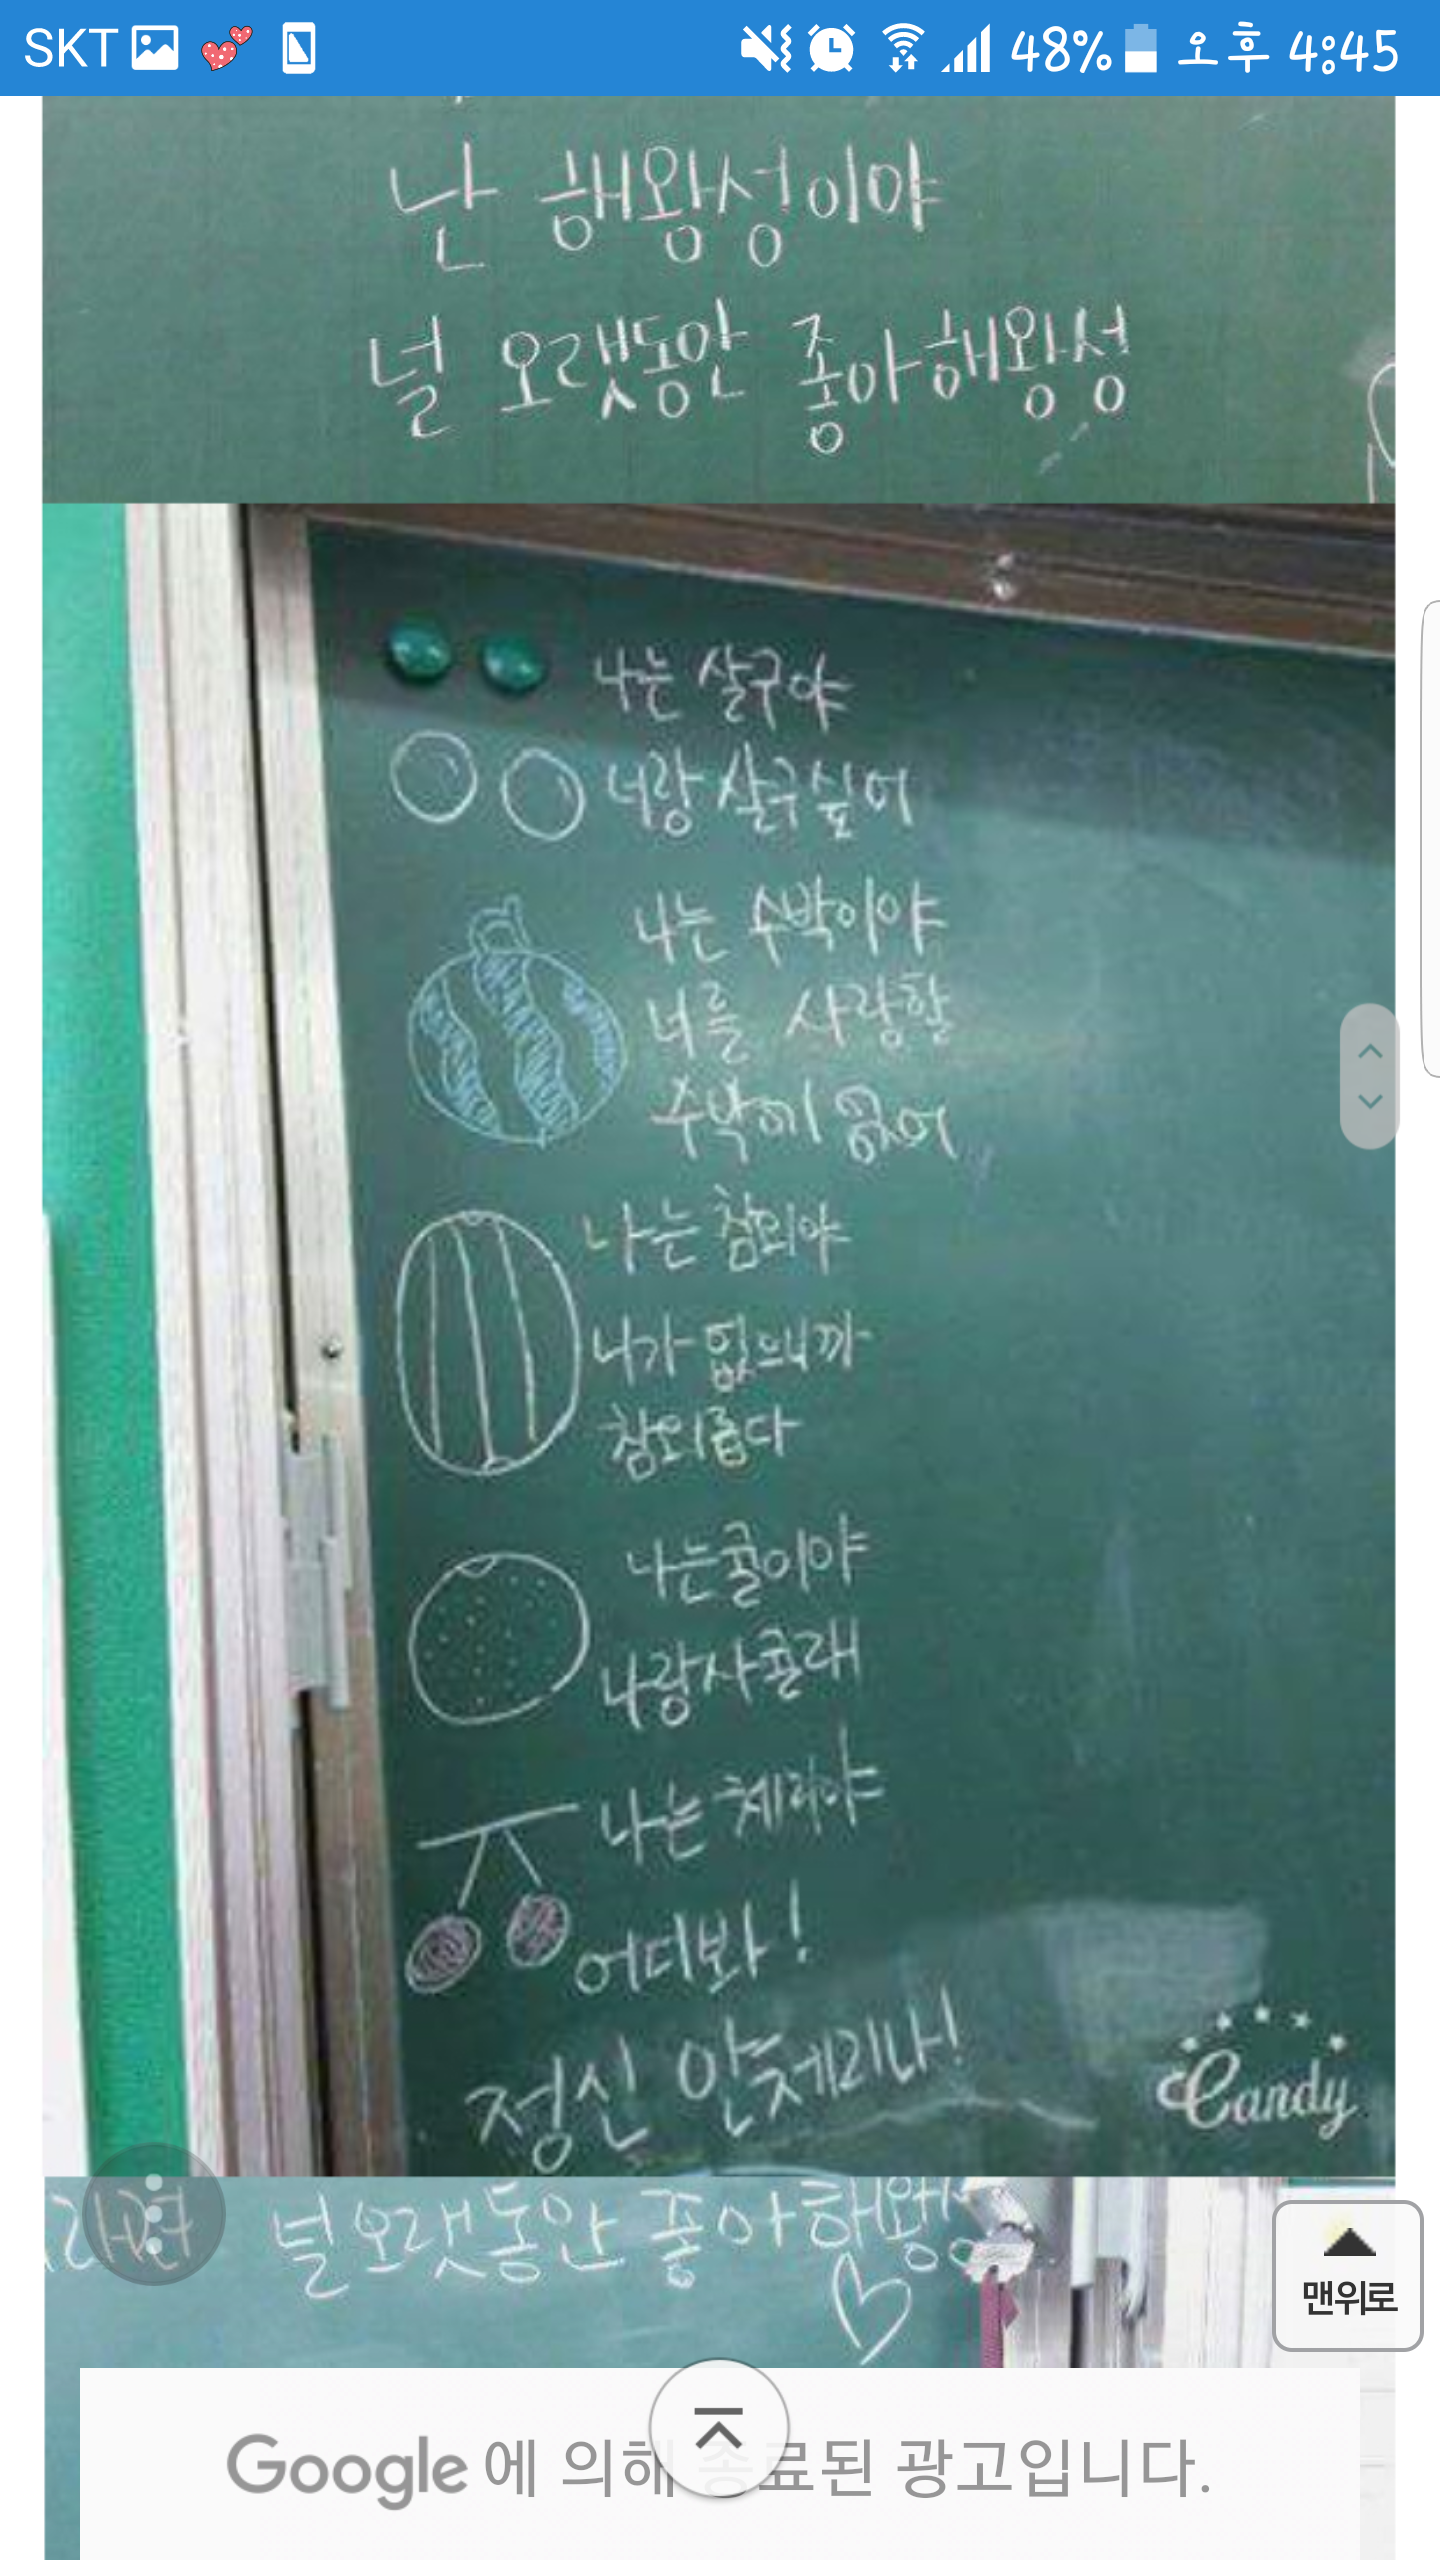 SKT 48% 오후 4:45
난 해왕성이야
널 오랫동안 좋아해왕성
나는 살구야
너랑 살구싶어
나는 수박이야
너를 사랑할
수박에 없어
나는 참외야
니가 없으니까
참외롭다
나는귤이야
나랑사귤래
나는체리야
어디봐!
정신 안체리나!
Candy
널오랫동안 좋아해왕
맨위로
Google에 의해 종료된 광고입니다.